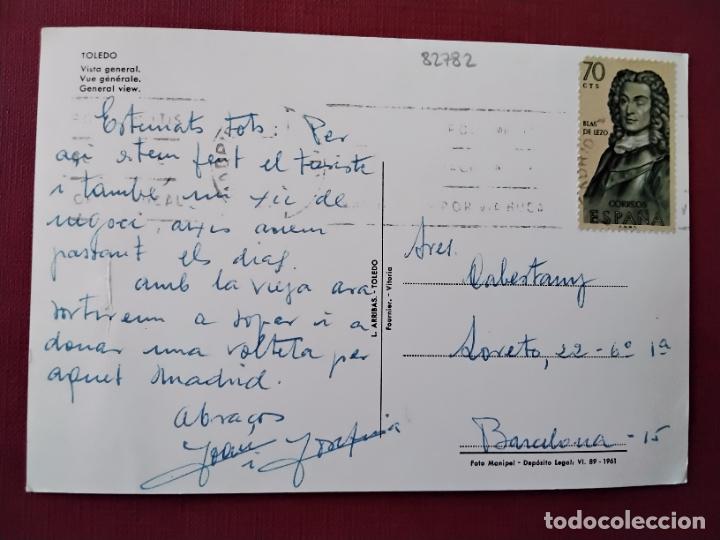 TOLEDO
Vista general.
Vue générale.
General view.
82782
Estimats tots: Per
açi estem fent el turista
i també un xic de
negoci, aixis anem
passant els dias.
amb la vieja ara
sortirem a sopar i a
donar una volteta per
aquet Madrid.
Abraços
Joan i Josefina
L. ARRIBAS. - TOLEDO
Fournier. - Vitoria
70
CTS
BLAS
DE LEZO
CORREOS
ESPAÑA
Sres.
Dabestany
Loreto, 22-6º 1ª
Barcelona - 15
Foto Manipel - Depósito Legal; VI. 89 - 1961
todocoleccion
todocoleccion.net